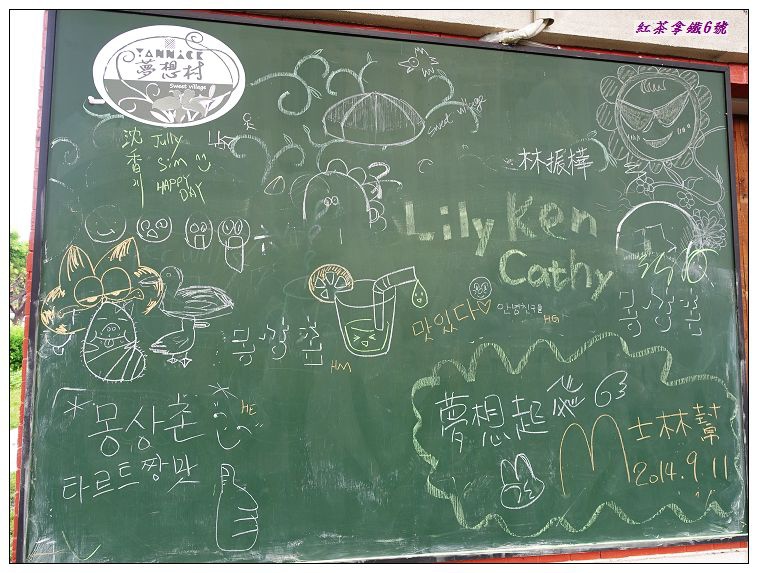 紅茶拿鐵6號
YANNICK
夢想村
Sweet village
sweet village
沈香川
Jully
Sim
HAPPY
DAY
林振樺
Lily Ken
Cathy
맛있다♡
안녕친구들
HG
몽상촌
몽상촌
HM
*몽상촌
HE
타르트 짱 맛
夢想起飛
M士林幫
2014.9.11